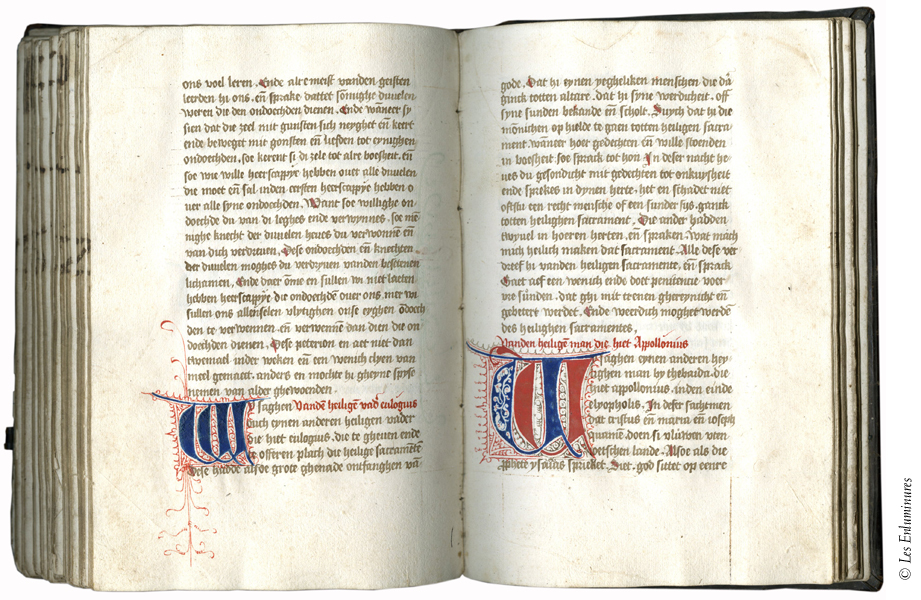 ons voel leren. Ende alremeist vanden geisten
leerden hi ons. en̄ sprake dattet sōmighe duuelen
weren die den ondoechden dienen. Ende wāneer sy
sien dat die zeel mit gunsten sich neyghet en̄ keert
ende beweget mit gonsten en̄ liefden tot eynighen
ondoechden, soe kerent si di zele tot alre boesheit. en̄
soe wie wille heerscappye hebben ouer alle duuelen
die moet en̄ sal inden eersten heerscappye hebben o
uer alle syne ondoechden. Want soe willighe on
doechde du van di leghes ende verwynnes. soe mē
nighe knecht der duuelen heues du verwonnē en̄
van dich verdreuen. Dese ondoechden en̄ knechten
der duuelen moghes du verdryuen vanden besetenen
lichamen. Ende daer ōme en sullen wi niet laeten
hebben heerscappye die ondoechden ouer ons mer wi
sullen ons altuselen vlytighen onse eyghen ōdoech
den te verwennen. en̄ verwennē dan dien die on
doechden dienen. Dese peterion en aet niet dan
tweimael inder weken en̄ een wenich clyen van
meel gemaect. anders en mochte hi gheyne spyse
nemen van alder ghewoenden.
saghen Vandē heiligē vad' eulogius
Wuch eynen anderen heilighen vader
die hiet eulogius. die te gheuen ende
te offeren plach die heilige sacramēte
Dese hadde alsoe grote ghenade ontfanghen vā
gode. dat hi eynen yegheliken menschen die dā
ginck totten altare. dat hi syne werdicheit. off
syne sunden bekande en̄ scholt. Duych dat hi die
mōnichen op hielde te gaen totten heiligen sacra
ment. wāneer hoer gedechten en̄ wille stoenden
in boesheit soe sprack tot hon. In deser nacht he
ues du gesondicht mit gedechten tot onkuysheit
ende sprekes in dynen herte. het en schadet niet
oftstu een recht mensche of een sunder sys. ganck
totten heilighen sacrament. Die ander hadden
twyuel in hoeren herten. en̄ spraken. wat mach
mich heilich maken dat sacrament. Alle dese ver
dreef hi vanden heiligen sacramente. en̄ sprack
Gaet aff een wenich ende doet penitencie voer
vre sūnden. dat ghi mit trenen ghereynicht en̄
gebetert werdet. Ende werdich moghet werdē
des heilighen sacramentes.
Vanden heiligē man die hiet Appollonius
Wi saghen eynen anderen hey
lighen man by thebaida. die
hiet appollonius. inden einde
elyopholis. In deser sachemen
dat cristus en̄ maria en̄ ioseph
quamē. doen si vluwen uten
ioetschen lande. Alsoe als die
ꝓphete ysaias spricket. Siet. god sittet op eenre
© Les Enluminures